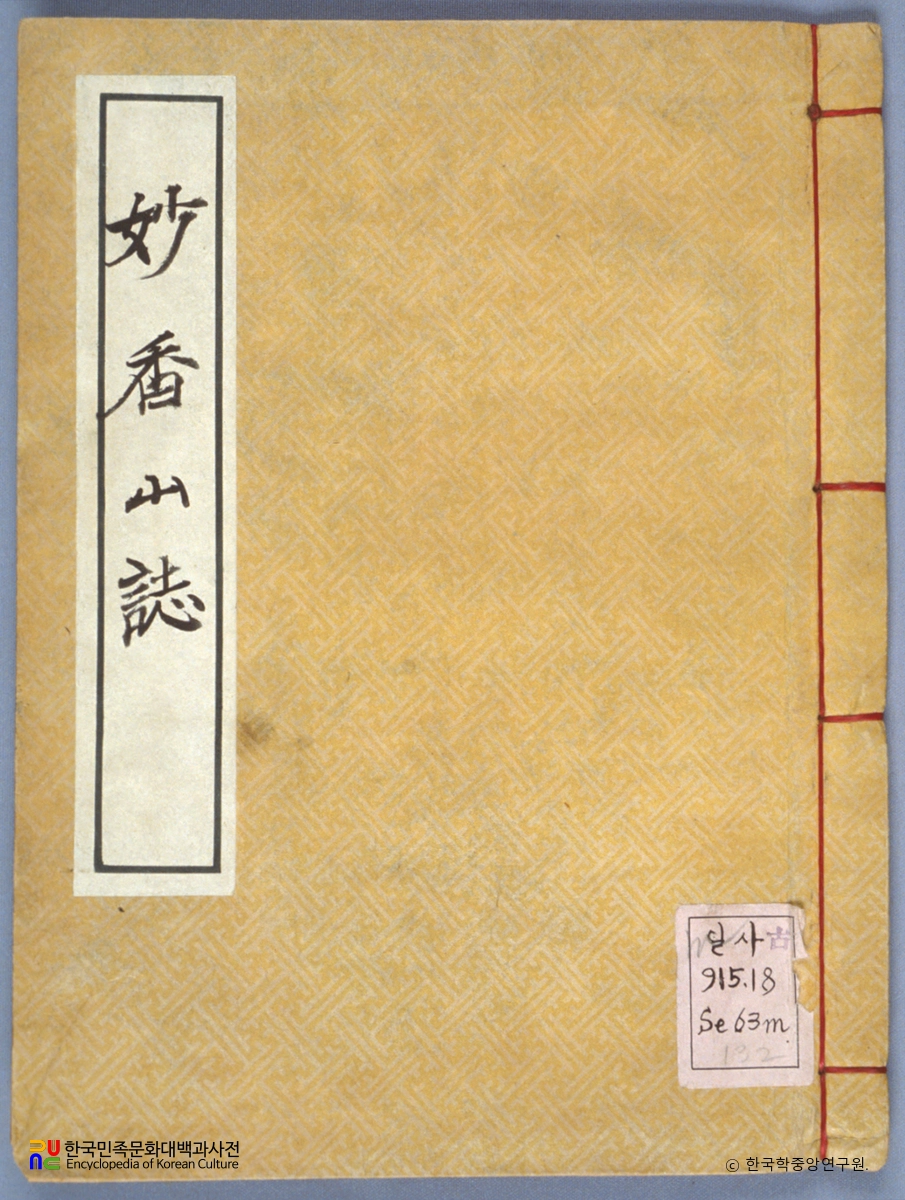 妙香山誌
일사 古
915.18
Se 63m
132
한국민족문화대백과사전
Encyclopedia of Korean Culture
© 한국학중앙연구원.